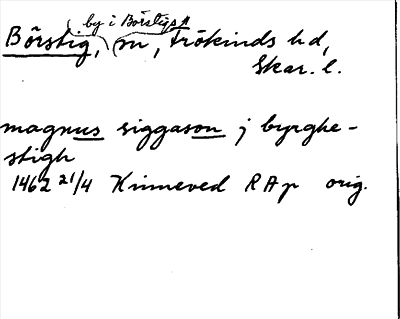 by i Börstigs sn
Börstig, sn, Frökinds hd,
Skar. l.
magnus siggason j byrghe-
stigh
1462 21/4 Kinneved RAp orig.